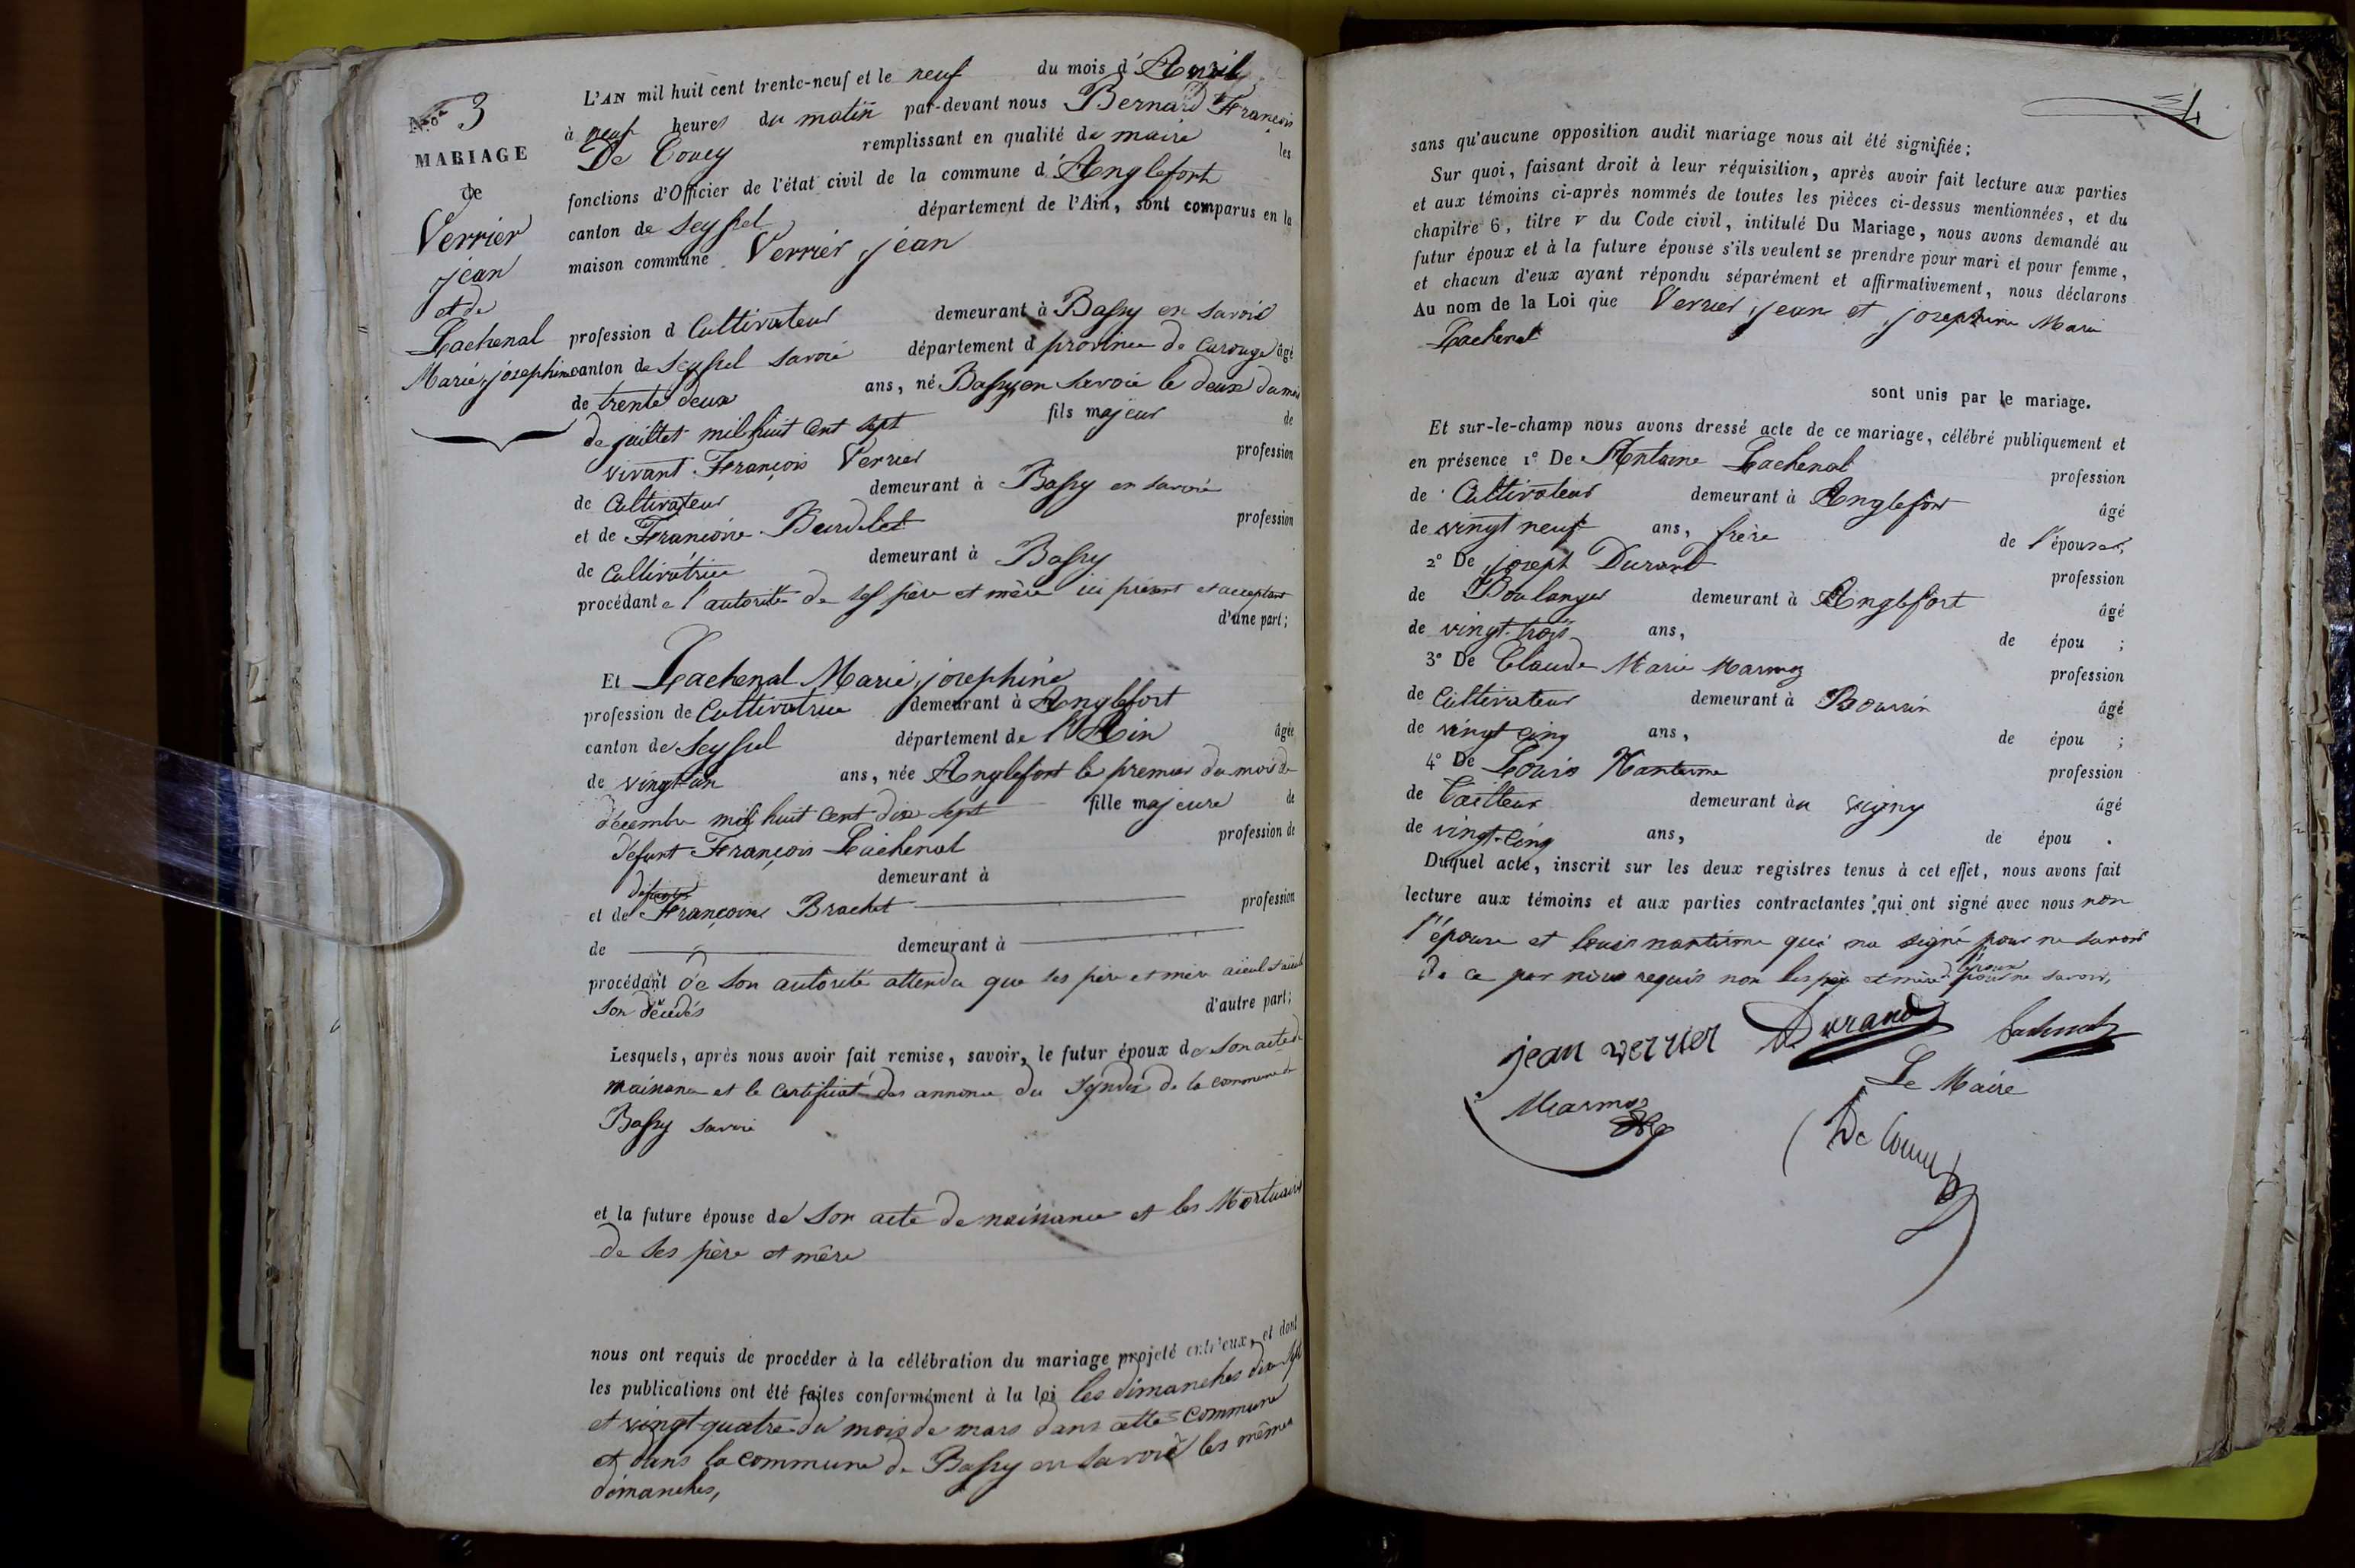 N.° 3
MARIAGE
de
Verrier
jean
et de
Lachenal
Marie josephine
L'AN mil huit cent trente-neuf et le neuf du mois d'Avril
à neuf heures du matin par-devant nous Bernard François
De Coucy remplissant en qualité de maire les
fonctions d'Officier de l'état civil de la commune d'Anglefort
canton de Seyssel département de l'Ain, sont comparus en la
maison commune Verrier jean
profession d Cultivateur demeurant à Bassy en Savoie
canton de Seyssel Savoie département d province de Carouge âgé
de trente deux ans, né Bassy en Savoie le deux du mois
de juillet mil huit cent sept fils majeur de
vivant François Verrier profession
de Cultivateur demeurant à Bassy en Savoie
et de Françoise profession
de Cultivatrice demeurant à Bassy
procédant e l'autorité de ses père et mère ici présent et acceptant
d'une part;
Et Lachenal Marie josephine
profession de Cultivatrice demeurant à Anglefort
canton de Seyssel département de l'Ain âgée
de vingt un ans, née Anglefort le premier du mois de
décembre mil huit cent dix sept fille majeure de
défunt François Lachenal profession de
demeurant à
défunte
et de Françoise Brachet profession
de demeurant à
procédant de son autorité attendu que ses père et mère aïeul et aïeule
son décédés d'autre part;
Lesquels, après nous avoir fait remise, savoir, le futur époux de son acte de
naissance et le certificat des annonce du Syndic de la commune de
Bassy Savoie
et la future épouse de son acte de naissance et les Mortuaires
de ses père et mère
nous ont requis de procéder à la célébration du mariage projeté entr'eux, et dont
les publications ont été faites conformément à la loi les dimanches dix sept
et vingt quatre du mois de mars dans cette commune
et dans la commune de Bassy en Savoie les mêmes
dimanches,
4
sans qu'aucune opposition audit mariage nous ait été signifiée;
Sur quoi, faisant droit à leur réquisition, après avoir fait lecture aux parties
et aux témoins ci-après nommés de toutes les pièces ci-dessus mentionnées, et du
chapitre 6, titre v du Code civil, intitulé Du Mariage, nous avons demandé au
futur époux et à la future épouse s'ils veulent se prendre pour mari et pour femme,
et chacun d'eux ayant répondu séparément et affirmativement, nous déclarons
Au nom de la Loi que Verrier jean et josephine Marie
Lachenal
sont unis par le mariage.
Et sur-le-champ nous avons dressé acte de ce mariage, célébré publiquement et
en présence 1° De Antoine Lachenal profession
de Cultivateur demeurant à Anglefort âgé
de vingt neuf ans, frère de l'épouse;
2° De joseph Durand profession
de Boulanger demeurant à Anglefort âgé
de vingt-trois ans, de épou ;
3° De Claude Marie Marmoz profession
de Cultivateur demeurant à âgé
de vingt cinq ans, de épou ;
4° De Louis Nanterme profession
de Tailleur demeurant à âgé
de vingt-cinq ans, de épou .
Duquel acte, inscrit sur les deux registres tenus à cet effet, nous avons fait
lecture aux témoins et aux parties contractantes qui ont signé avec nous non
l'épouse et louis nanterme qui na signé pour ne savoir
de ce par nous requis non les père et mère de l'époux pour ne savoir,
jean verrier Durand Lachenal
Le Maire
Marmoz De Coucy